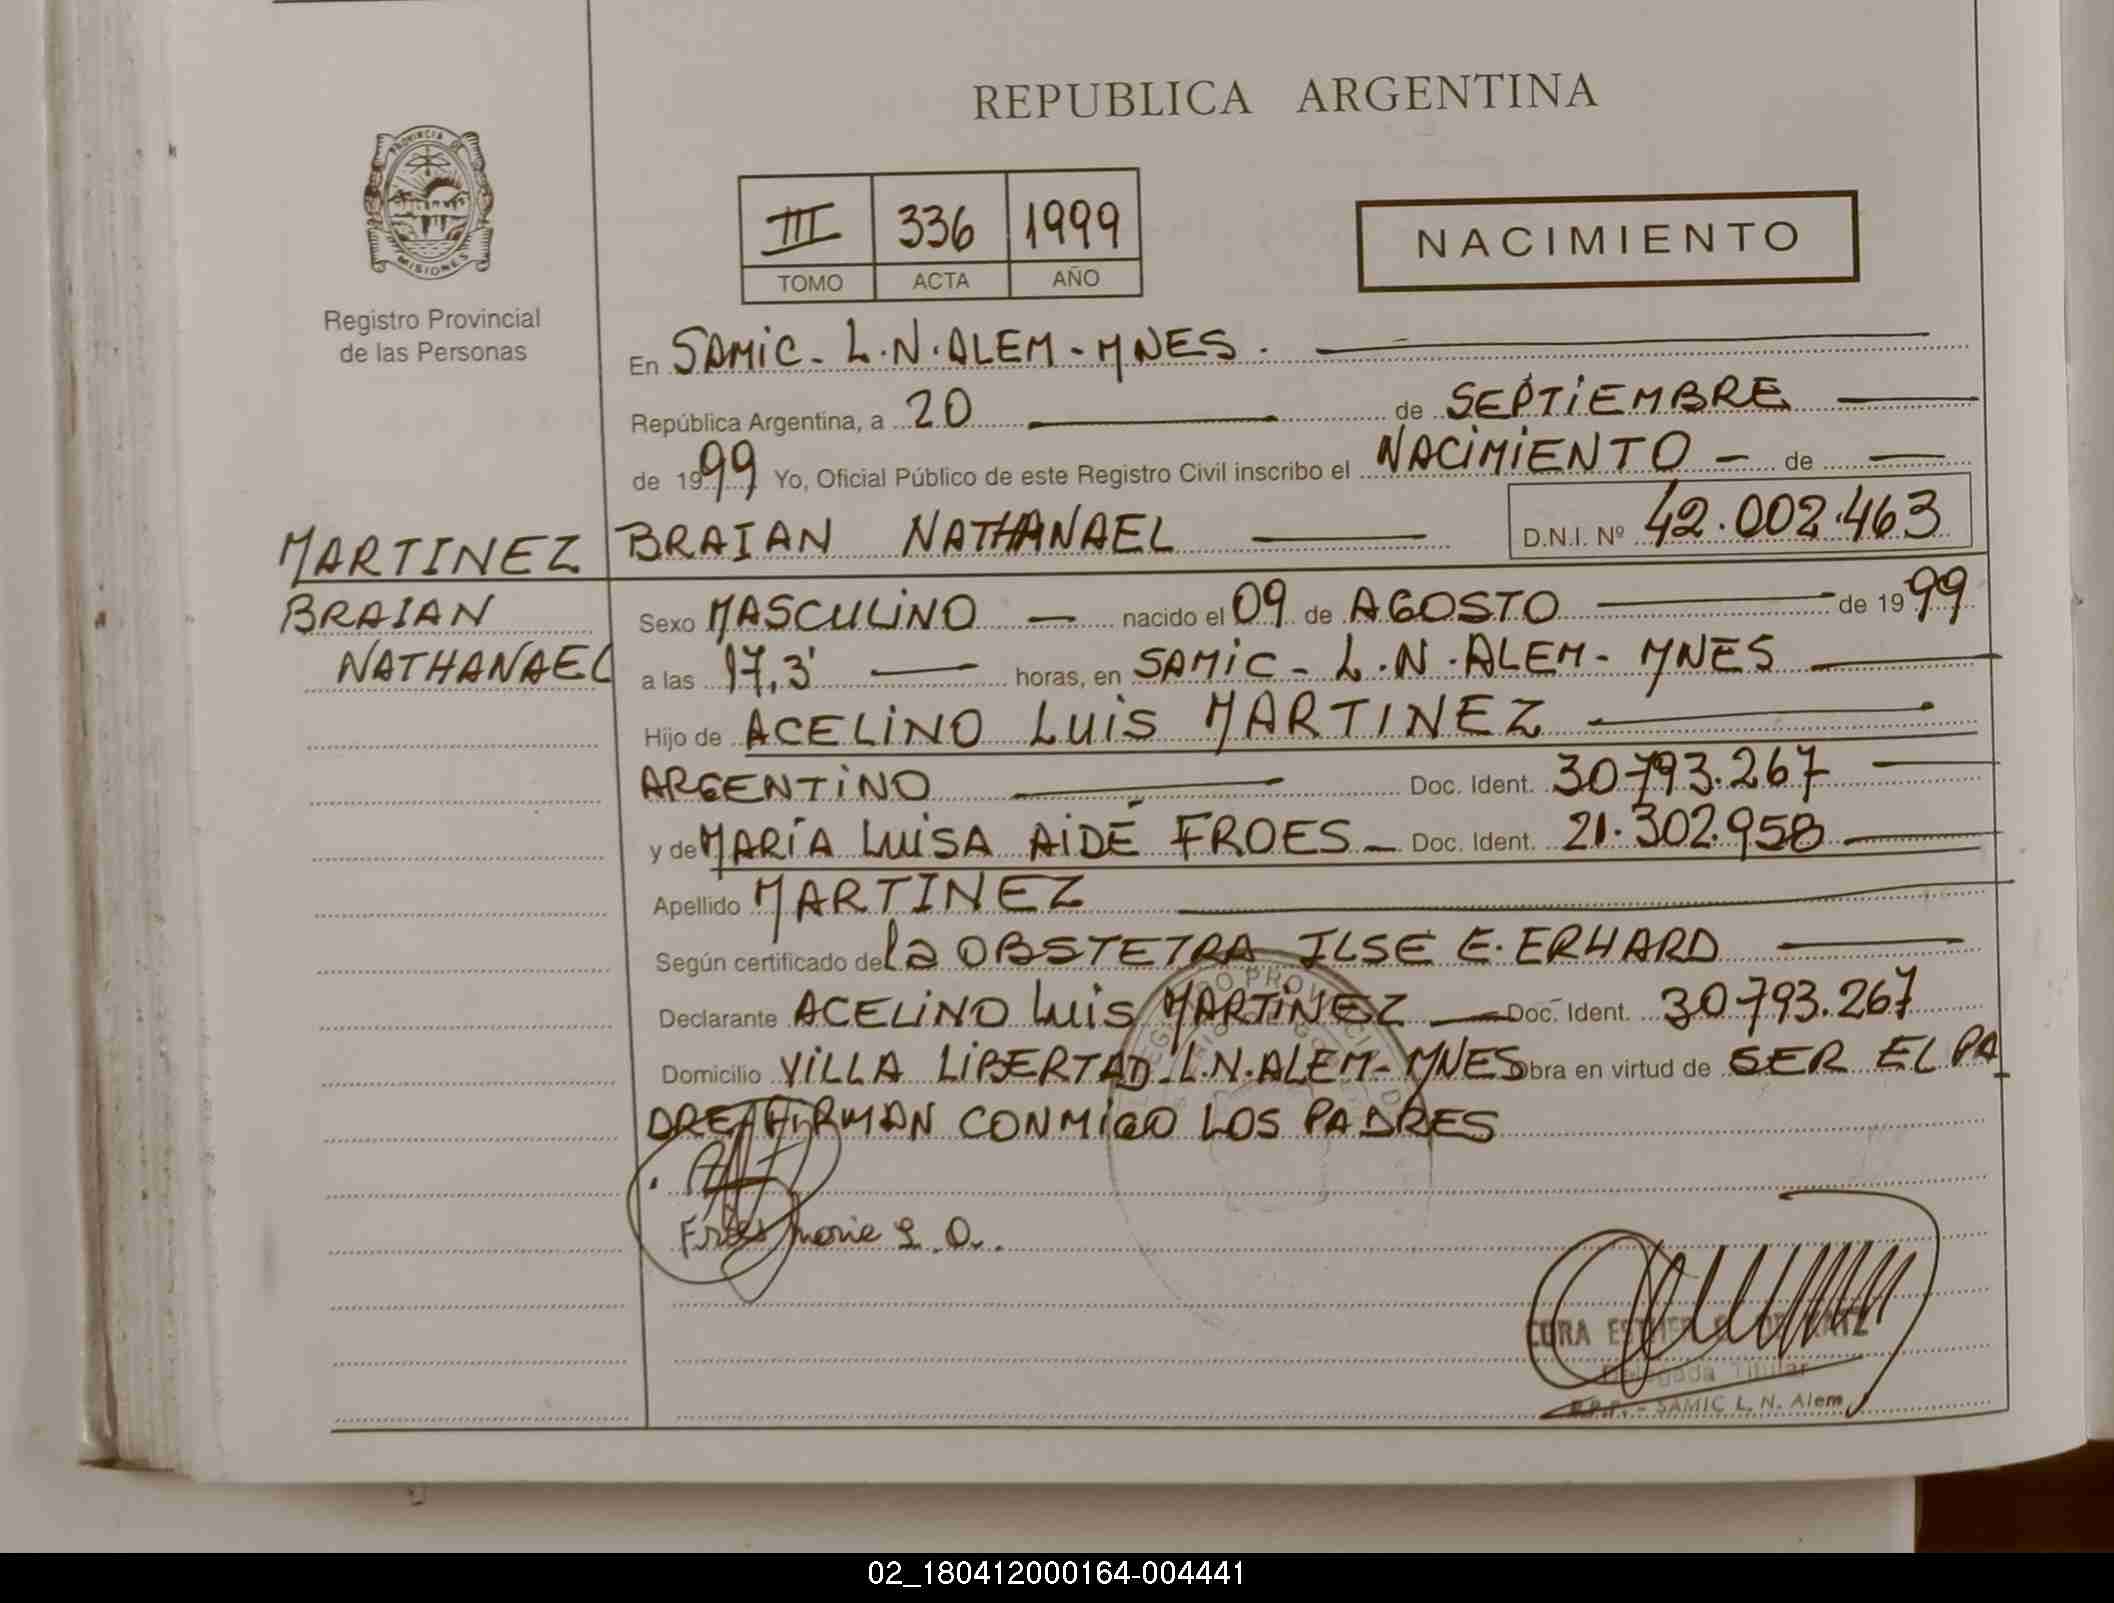 REPUBLICA ARGENTINA
PROVINCIA DE
MISIONES
Registro Provincial
de las Personas
III 336 1999
TOMO ACTA AÑO
NACIMIENTO
En SAMIC - L.N. ALEM - MNES.
República Argentina, a 20 de SEPTIEMBRE
de 1999 Yo, Oficial Público de este Registro Civil inscribo el NACIMIENTO - de
MARTINEZ BRAIAN NATHANAEL D.N.I. Nº 42.002.463
BRAIAN
NATHANAEL
Sexo MASCULINO nacido el 09 de AGOSTO de 1999
a las 17,3' horas, en SAMIC - L.N. ALEM - MNES
Hijo de ACELINO LUIS MARTINEZ
ARGENTINO Doc. Ident. 30.793.267
y de MARÍA LUISA AIDÉ FROES - Doc. Ident. 21.302.958
Apellido MARTINEZ
Según certificado de la OBSTETRA ILSE E. ERHARD
Declarante ACELINO LUIS MARTINEZ Doc. Ident. 30.793.267
Domicilio VILLA LIBERTAD - L.N. ALEM - MNES Obra en virtud de SER EL PA
DRE, FIRMAN CONMIGO LOS PADRES
Delegada Titular
SAMIC L. N. Alem
02_180412000164-004441